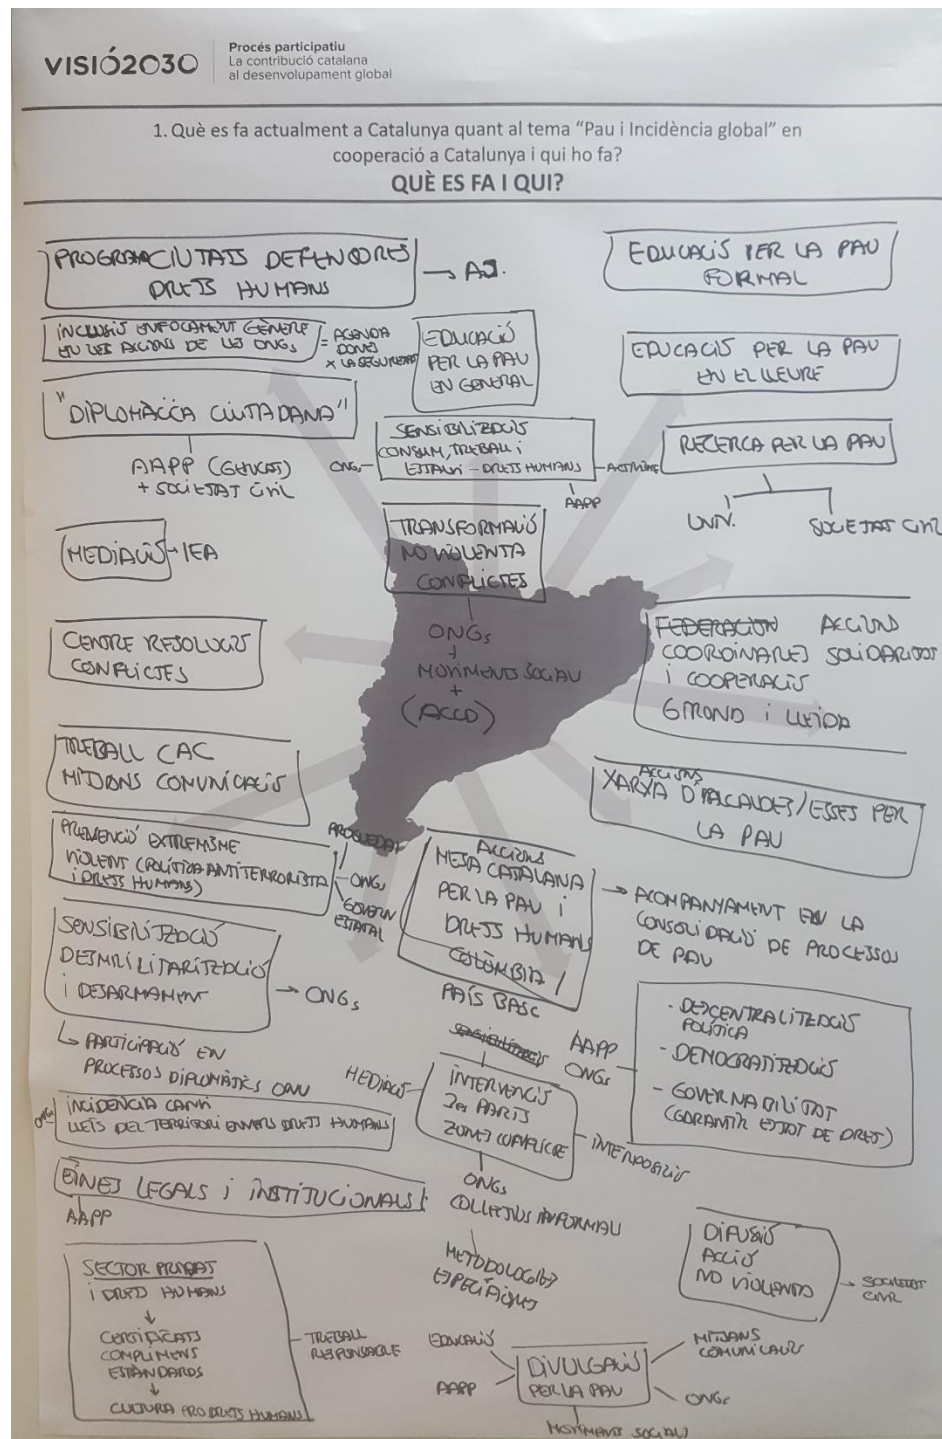 VISIÓ2030
Procés participatiu
La contribució catalana
al desenvolupament global
1. Què es fa actualment a Catalunya quant al tema “Pau i Incidència global” en
cooperació a Catalunya i qui ho fa?
QUÈ ES FA I QUI?
PROGRAMA CIUTATS DEFENSORES
DRETS HUMANS
→ AJ.
EDUCACIÓ PER LA PAU
FORMAL
INCLUSIÓ ENFOCAMENT GÈNERE
EN LES ACCIONS DE LES ONGs
= AGENDA
DONES
X LA SEGURETAT
EDUCACIÓ
PER LA PAU
EN GENERAL
EDUCACIÓ PER LA PAU
EN EL LLEURE
"DIPLOMÀCIA CIUTADANA"
AAPP (GENCAT)
+ SOCIETAT CIVIL
SENSIBILITZACIÓ
CONSUM, TREBALL I
ESTALVI - DRETS HUMANS
ONGs
AAPP
RECERCA PER LA PAU
UNIV.
SOCIETAT CIVIL
MEDIACIÓ - IEA
TRANSFORMACIÓ
NO VIOLENTA
CONFLICTES
ONGs
+
MOVIMENTS SOCIALS
+
(ACCD)
CENTRE RESOLUCIÓ
CONFLICTES
FEDERACION ACCIONS
COORDINADORES SOLIDARITAT
I COOPERACIÓ
GIRONA I LLEIDA
TREBALL CAC
MITJANS COMUNICACIÓ
ACCIONS
XARXA D'ALCALDES/ESSES PER
LA PAU
PREVENCIÓ EXTREMISME
VIOLENT (POLÍTICA ANTITERRORISTA
I DRETS HUMANS)
- ONGs
GOVERN
ESTATAL
ACCIONS
MESA CATALANA
PER LA PAU I
DRETS HUMANS
COLÒMBIA /
PAÍS BASC
→ ACOMPANYAMENT EN LA
CONSOLIDACIÓ DE PROCESSOS
DE PAU
SENSIBILITZACIÓ
DESMILITARITZACIÓ
I DESARMAMENT
→ ONGs
↳ PARTICIPACIÓ EN
PROCESSOS DIPLOMÀTICS ONU
AAPP
ONGs
- DESCENTRALITZACIÓ
POLÍTICA
- DEMOCRATITZACIÓ
- GOVERNABILITAT
(GARANTIR ESTAT DE DRET)
MEDIACIÓ
INTERVENCIÓ
3es PARTS
ZONES CONFLICTE
- INTERPOSICIÓ
ONGs
COL·LECTIUS INFORMALS
METODOLOGIES
ESPECÍFIQUES
ONGs
INCIDÈNCIA CANVI
LLEIS DEL TERRITORI ENVERS DRETS HUMANS
EINES LEGALS I INSTITUCIONALS
AAPP
DIFUSIÓ
ACCIÓ
NO VIOLENTA
→ SOCIETAT
CIVIL
SECTOR PRIVAT
I DRETS HUMANS
↓
CERTIFICATS
COMPLIMENT
ESTÀNDARDS
↓
CULTURA PRO DRETS HUMANS
- TREBALL
RESPONSABLE
EDUCACIÓ
AAPP
DIVULGACIÓ
PER LA PAU
MITJANS
COMUNICACIÓ
ONGs
MOVIMENTS SOCIALS